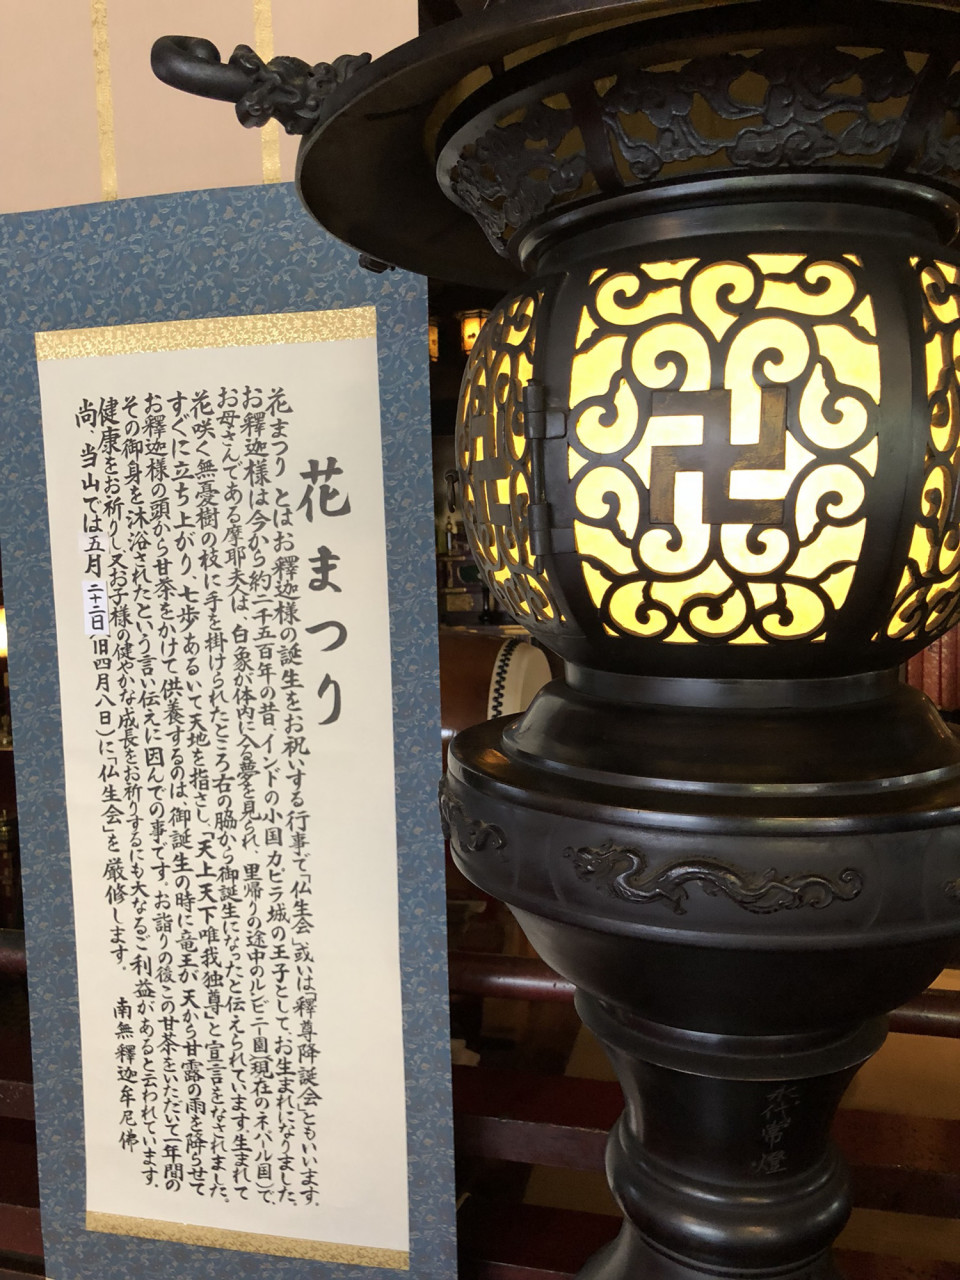 花まつり
花まつりとはお釋迦様の誕生をお祝いする行事で「仏生会」或いは「釋尊降誕会」ともいいます。
お釋迦様は今から約二千五百年の昔、インドの小国カピラ城の王子として、お生まれになりました。
お母さんである摩耶夫人は、白象が体内に入る夢を見られ、里帰りの途中のルンビニー園(現在のネパール国)で、
花咲く無憂樹の枝に手を掛けられたところ右の脇から御誕生になったと伝えられています。生まれて
すぐに立ち上がり、七歩あるいて天地を指さし、「天上天下唯我独尊」と宣言をなされました。
お釋迦様の頭から甘茶をかけて供養するのは、御誕生の時に竜王が天から甘露の雨を降らせて
その御身を沐浴されたという言い伝えに因んでの事です。お詣りの後この甘茶をいただいて一年間の
健康をお祈りし、又お子様の健やかな成長をお祈りするにも大なるご利益があると云われています。
尚、当山では五月二十二日(旧四月八日)に「仏生会」を厳修します。 南無釋迦牟尼佛
永代常燈